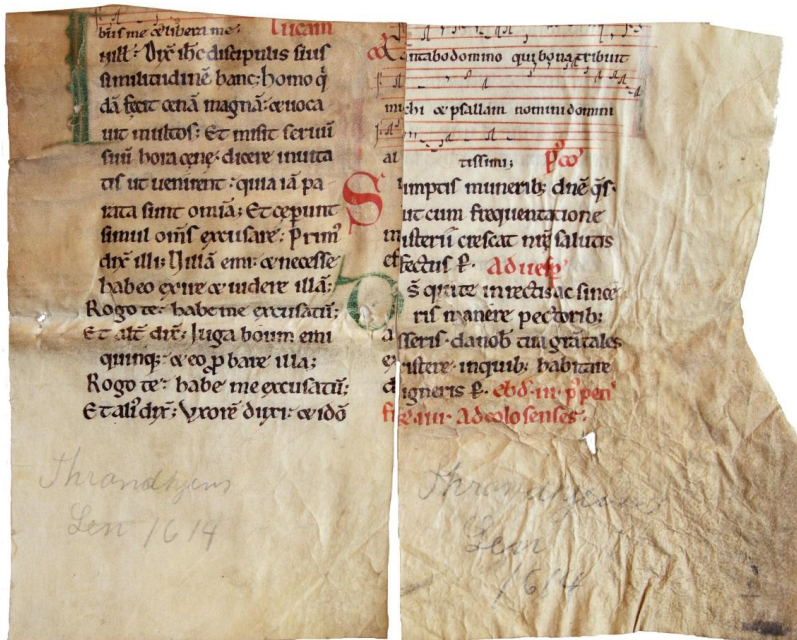 bus me & libera me:
lucam
nill: Dix̄ ihc discipulis suis
similitudinē hanc: homo q̄
dā fecit cenā magnā: & uoca
uit multos: Et misit seruū
suū hora cene: dicere inuita
tis ut uenirent: quia iā pa
rata sunt om̄ia: Et ceperunt
simul om̄s excusare: Prim᷒
dix̄ illi: Uillā emi: & necesse
habeo exire & uidere illā:
Rogo te: habe me excusatū:
Et alt̄ dix̄: Iuga boum emi
quinq: & eo ꝓbare illa:
Rogo te: habe me excusatū:
Et ali᷒ dix̄: Vxorē duxi: & idō
Cantabo domino qui bona tribuit
michi & psallam nomini domini
al tissimi:
Sumptis munerib; dn̄e q̄s
ut cum frequentatione
misterii crescat nr̄e salutis
effectus
Ad uesp̄
Ds̄ qui te in rectis ac since
ris manere pectorib;
asseris da nob tua gratia tales
existere in quib; habitare
digneris
Ad colosenses
Thrandhjems
Len 1614
Thrandhjems
Len
1614